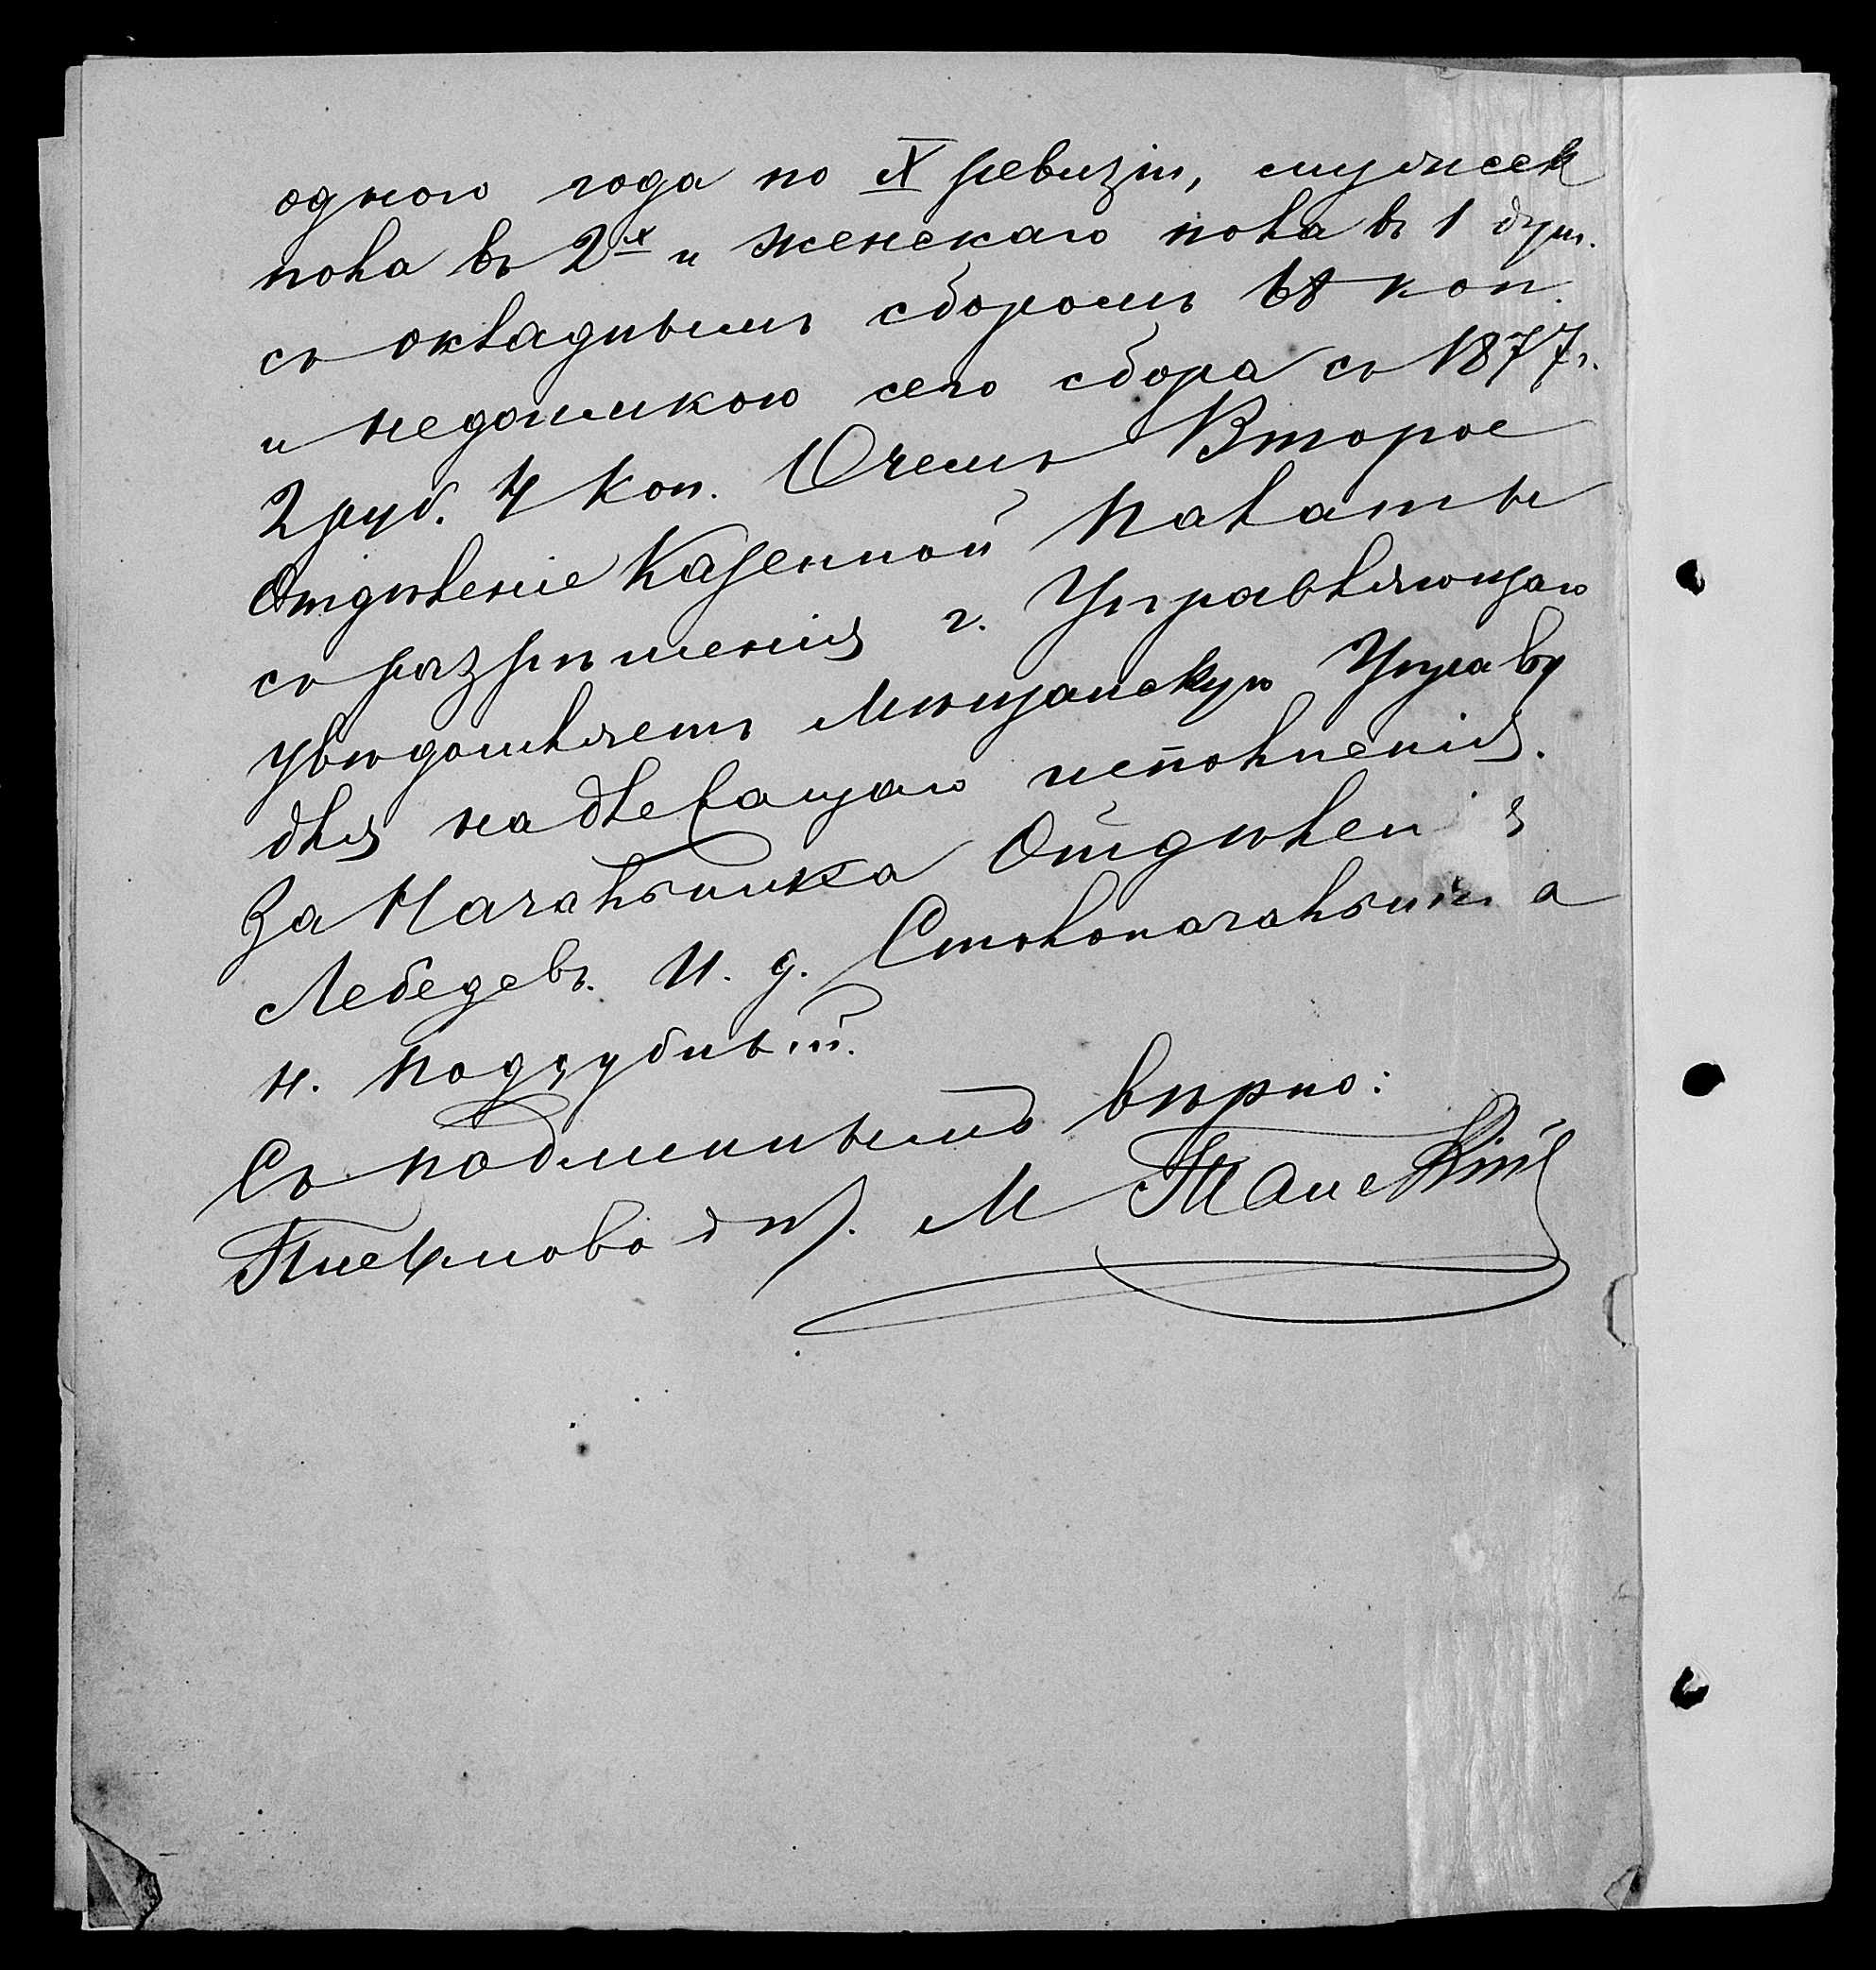 одного года по X ревизіи, мужеск
пола въ 2х и женскаго пола въ 1 душ.
съ окладнымъ сборомъ 68 коп.
и недоимкою сего сбора съ 1877 г.
2 руб. 4 коп. О чемъ Второе
Отдѣленіе Казенной Палаты
съ разрѣшенія г. Управляющаго
увѣдомляетъ Мѣщанскую Управу
для надлежащаго исполненія.
За Начальника Отдѣленія
Лебедевъ. И. д. Столоначальника
Н. Поддубный.
Съ подлиннымъ вѣрно:
Письмоводит. М